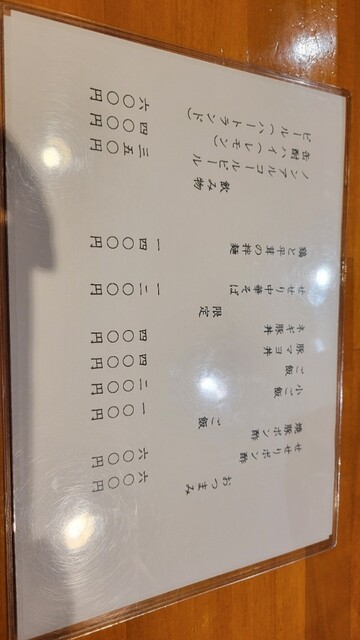 おつまみ
せせりポン酢 六〇〇円
焼豚ポン酢 六〇〇円
ご飯
小ご飯 一〇〇円
ご飯 二〇〇円
豚マヨ丼 四〇〇円
ネギ豚丼 四〇〇円
限定
せせり中華そば 一二〇〇円
鶏と平茸の拌麺 一四〇〇円
飲み物
ノンアルコールビール 三五〇円
缶酎ハイ(レモン) 四〇〇円
ビール(ハートランド) 六〇〇円